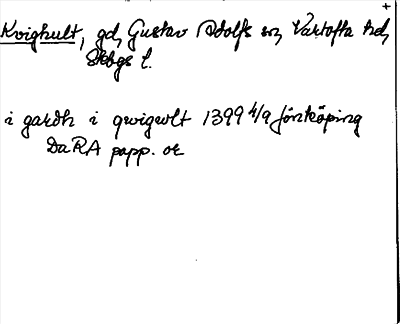 Kvighult, gd, Gustav Adolfs sn, Vartofta hd,
Skbgs l.
i gardh i qwigwlt 1399 4/9 Jönköping
DaRA papp. or